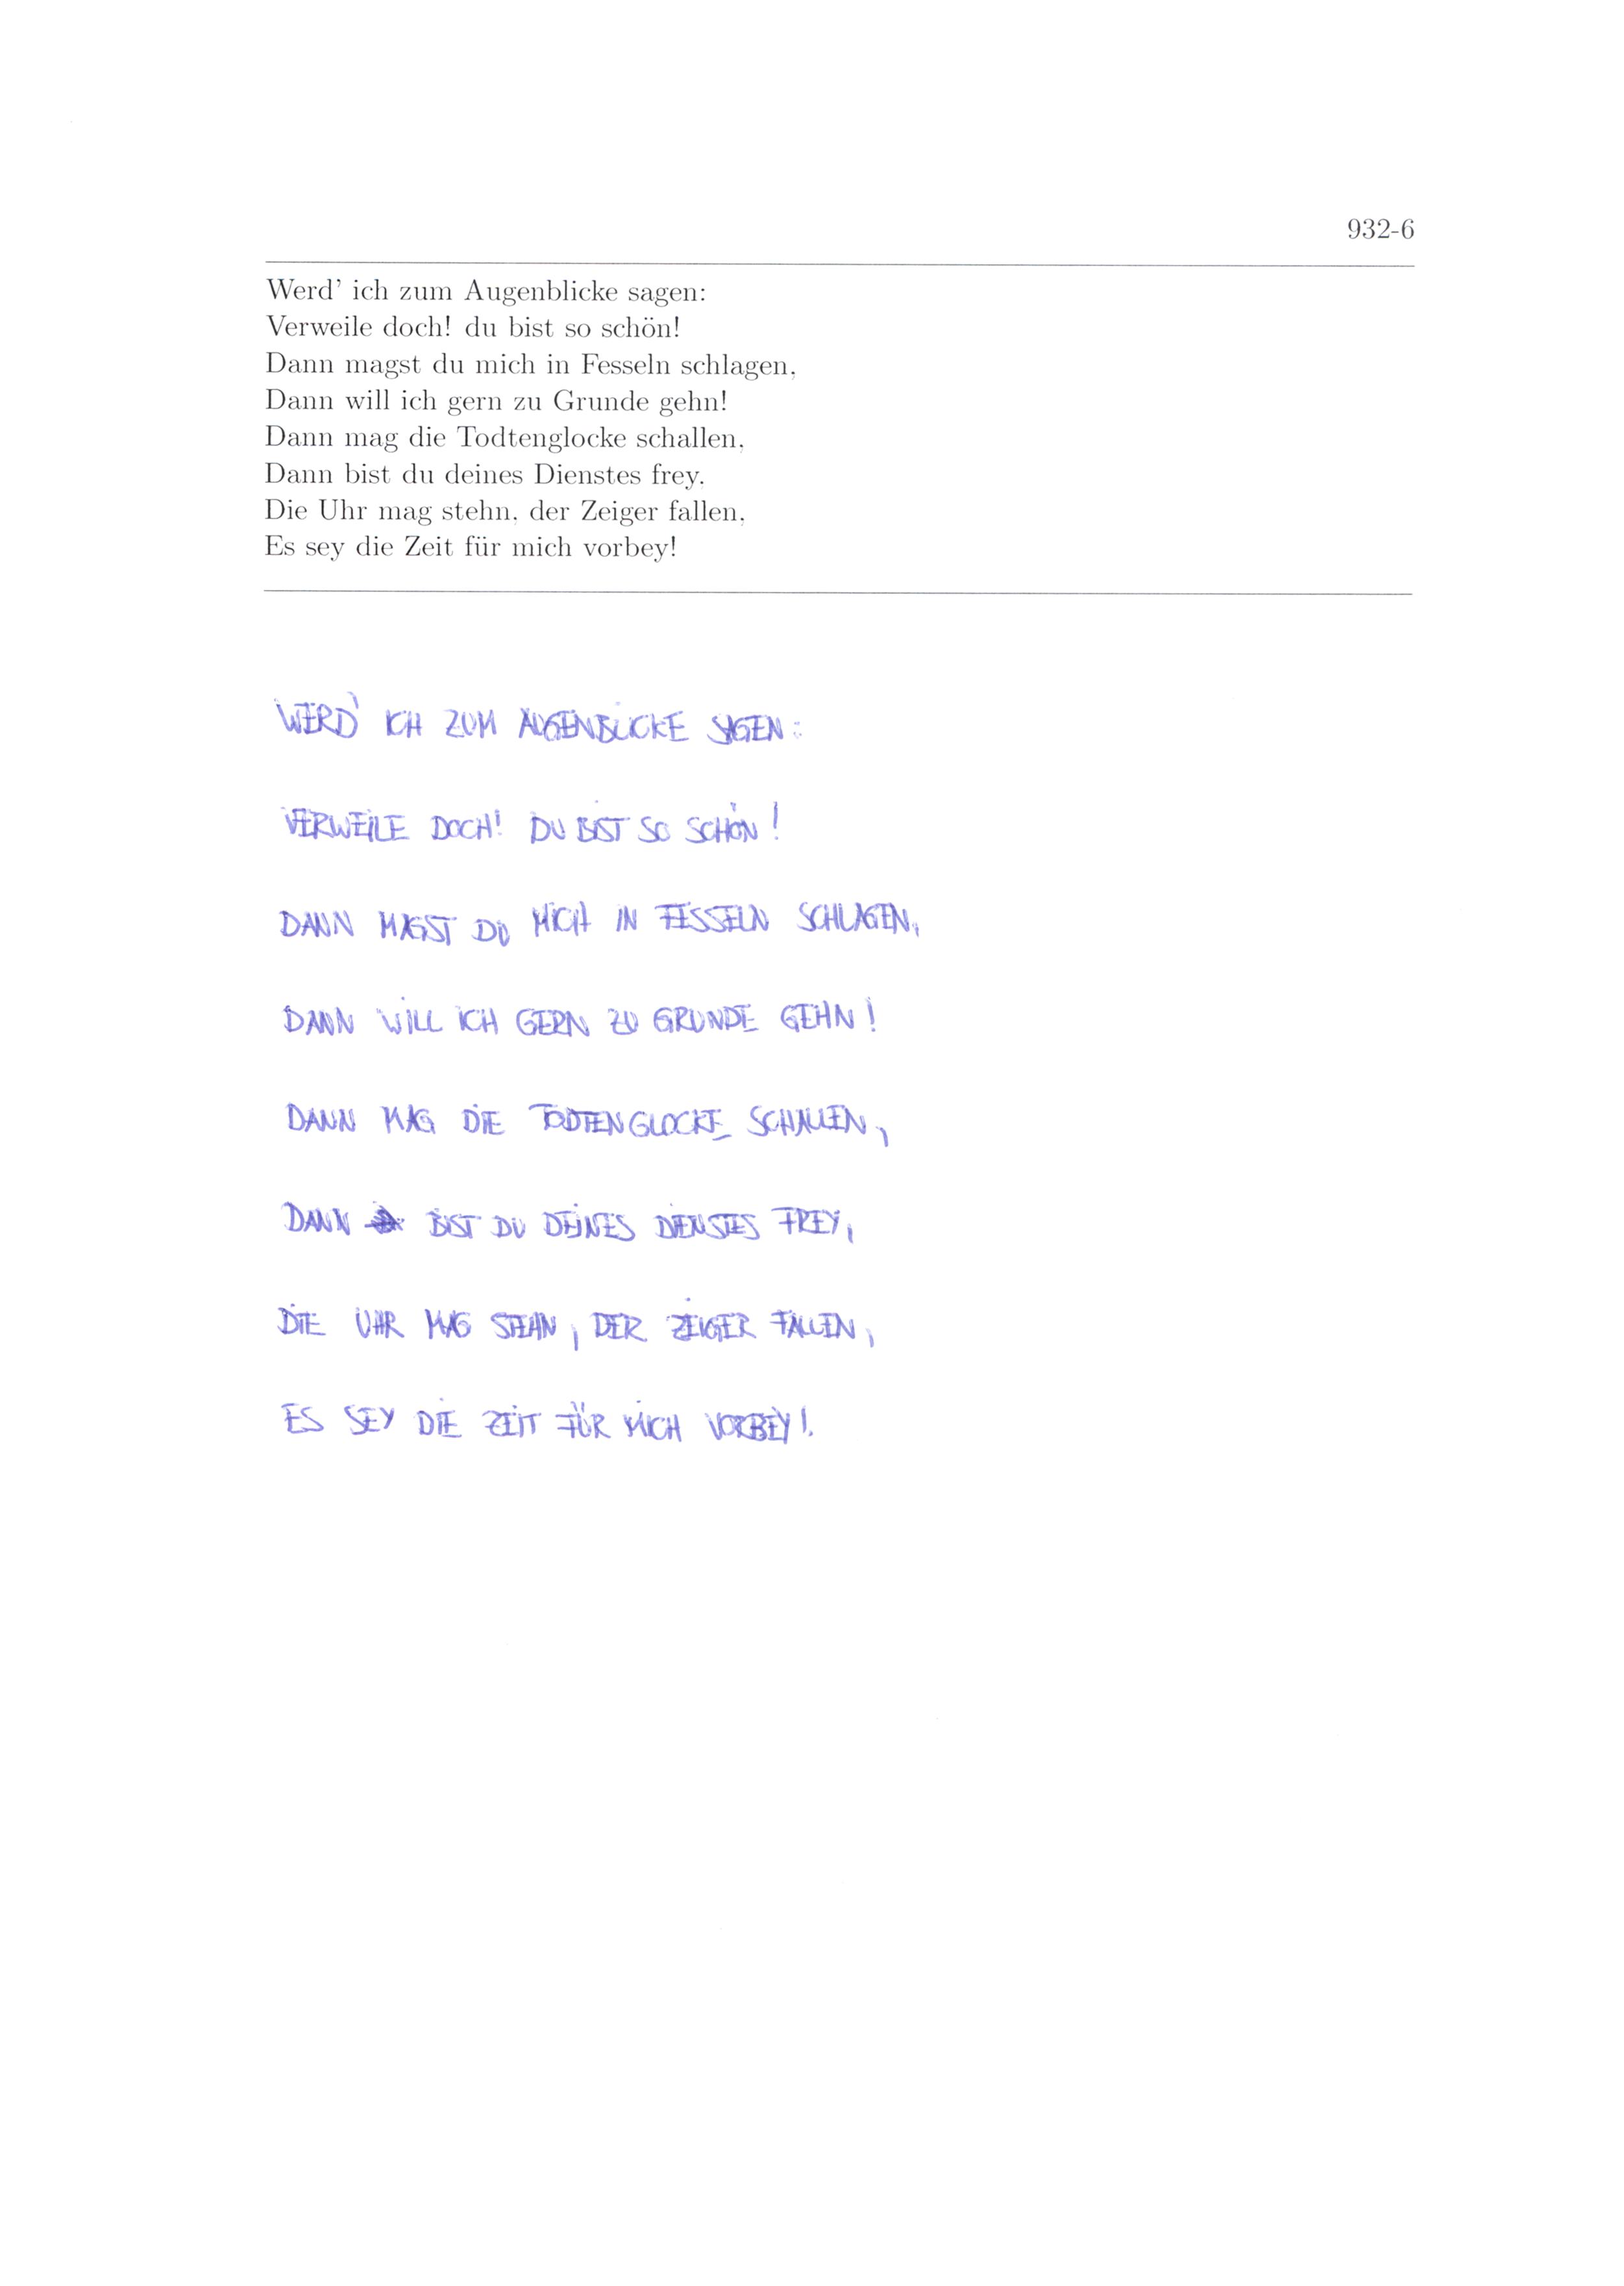 932-6
Werd' ich zum Augenblicke sagen:
Verweile doch! du bist so schön!
Dann magst du mich in Fesseln schlagen,
Dann will ich gern zu Grunde gehn!
Dann mag die Todtenglocke schallen,
Dann bist du deines Dienstes frey.
Die Uhr mag stehn, der Zeiger fallen,
Es sey die Zeit für mich vorbey!
WERD' ICH ZUM AUGENBLICKE SAGEN:
VERWEILE DOCH! DU BIST SO SCHÖN!
DANN MAGST DU MICH IN FESSELN SCHLAGEN,
DANN WILL ICH GERN ZU GRUNDE GEHN!
DANN MAG DIE TODTENGLOCKE SCHALLEN,
DANN BIST DU DEINES DIENSTES FREY,
DIE UHR MAG STEHN, DER ZEIGER FALLEN,
ES SEY DIE ZEIT FÜR MICH VORBEY!